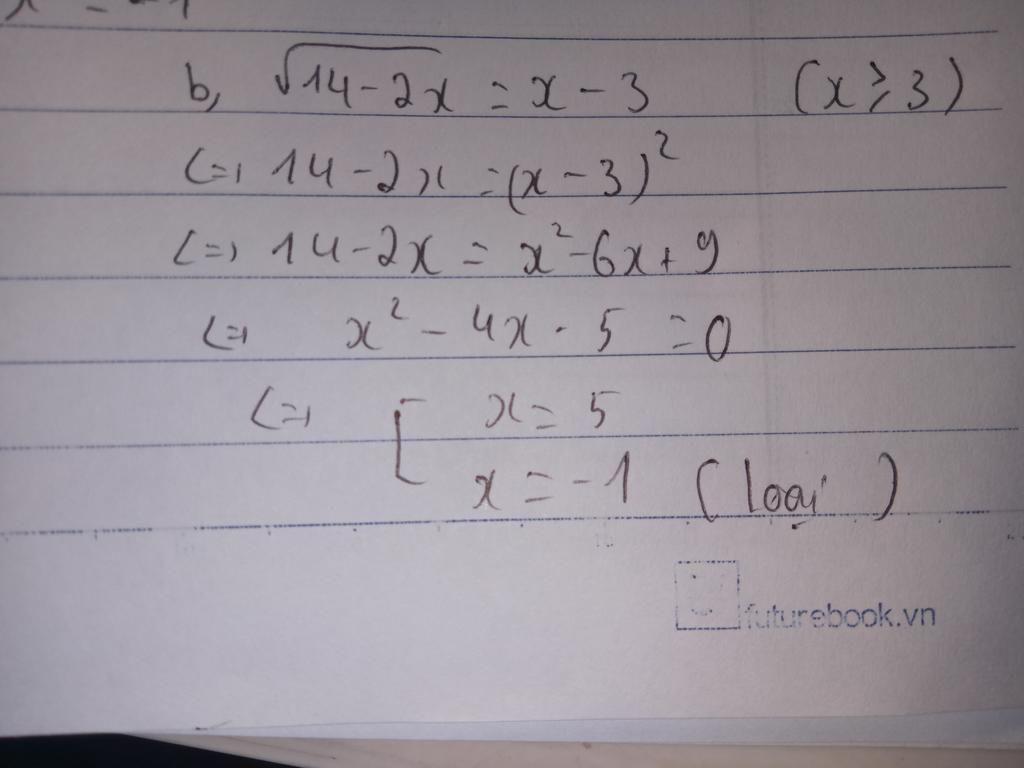 x = -1
b, √14-2x = x - 3 (x ≥ 3)
<=> 14 - 2x = (x - 3)²
<=> 14 - 2x = x² - 6x + 9
<=> x² - 4x - 5 = 0
<=> [ x = 5
x = -1 (loại)
futurebook.vn